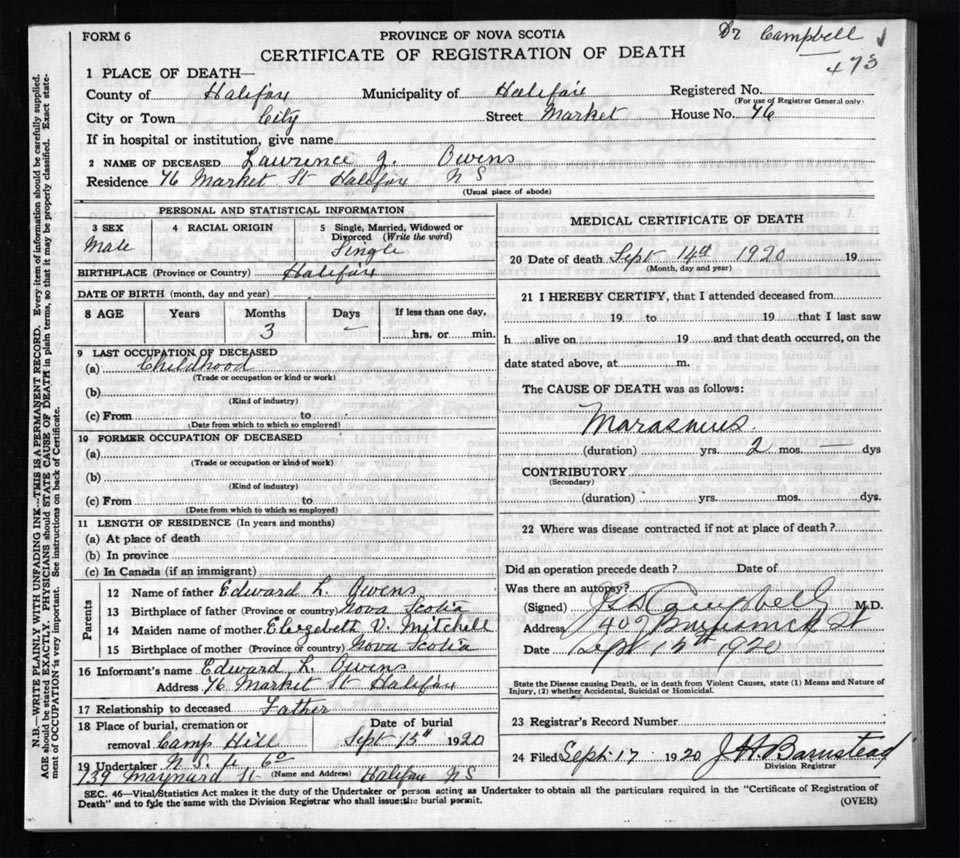 Dr Campbell
473
FORM 6
PROVINCE OF NOVA SCOTIA
CERTIFICATE OF REGISTRATION OF DEATH
1 PLACE OF DEATH—
County of Halifax Municipality of Halifax Registered No.
(For use of Registrar General only)
City or Town City Street Market House No. 76
If in hospital or institution, give name
2 NAME OF DECEASED Lawrence J. Owens
Residence 76 Market St Halifax N S
(Usual place of abode)
PERSONAL AND STATISTICAL INFORMATION
3 SEX 4 RACIAL ORIGIN 5 Single, Married, Widowed or
Divorced (Write the word)
Male Single
BIRTHPLACE (Province or Country) Halifax
DATE OF BIRTH (month, day and year)
8 AGE Years Months Days If less than one day,
3 — hrs. or min.
9 LAST OCCUPATION OF DECEASED
(a) Childhood
(Trade or occupation or kind or work)
(b)
(Kind of industry)
(c) From to
(Date from which to which so employed)
10 FORMER OCCUPATION OF DECEASED
(a)
(Trade or occupation or kind of work)
(b)
(Kind of industry)
(c) From to
(Date from which to which so employed)
11 LENGTH OF RESIDENCE (In years and months)
(a) At place of death
(b) In province
(c) In Canada (if an immigrant)
Parents
12 Name of father Edward L. Owens
13 Birthplace of father (Province or country) Nova Scotia
14 Maiden name of mother Elizebeth V. Mitchell
15 Birthplace of mother (Province or country) Nova Scotia
16 Informant's name Edward L. Owens
Address 76 Market St Halifax
17 Relationship to deceased Father
18 Place of burial, cremation or Date of burial
removal Camp Hill Sept 15th 1920
19 Undertaker N. S. Co
139 Maynard St (Name and Address) Halifax N S
MEDICAL CERTIFICATE OF DEATH
20 Date of death Sept 14th 1920 19
(Month, day and year)
21 I HEREBY CERTIFY, that I attended deceased from
19 to 19 that I last saw
h alive on 19 and that death occurred, on the
date stated above, at m.
The CAUSE OF DEATH was as follows:
Marasmus.
(duration) yrs. 2 mos. dys
CONTRIBUTORY
(Secondary)
(duration) yrs. mos. dys.
22 Where was disease contracted if not at place of death?
Did an operation precede death? Date of
Was there an autopsy?
(Signed) Campbell M.D.
Address 407 St
Date Sept 1920
State the Disease causing Death, or in death from Violent Causes, state (1) Means and Nature of
Injury, (2) whether Accidental, Suicidal or Homicidal.
23 Registrar's Record Number
24 Filed Sept 17 1920 J. H. Barnstead
Division Registrar
SEC. 46—Vital Statistics Act makes it the duty of the Undertaker or person acting as Undertaker to obtain all the particulars required in the "Certificate of Registration of
Death" and to file the same with the Division Registrar who shall issue the burial permit.
(OVER)
N.B.—WRITE PLAINLY WITH UNFADING INK—THIS IS A PERMANENT RECORD. Every item of information should be carefully supplied.
AGE should be stated EXACTLY. PHYSICIANS should STATE CAUSE OF DEATH in plain terms, so that it may be properly classified. Exact state-
ment of OCCUPATION is very important. See instructions on back of Certificate.